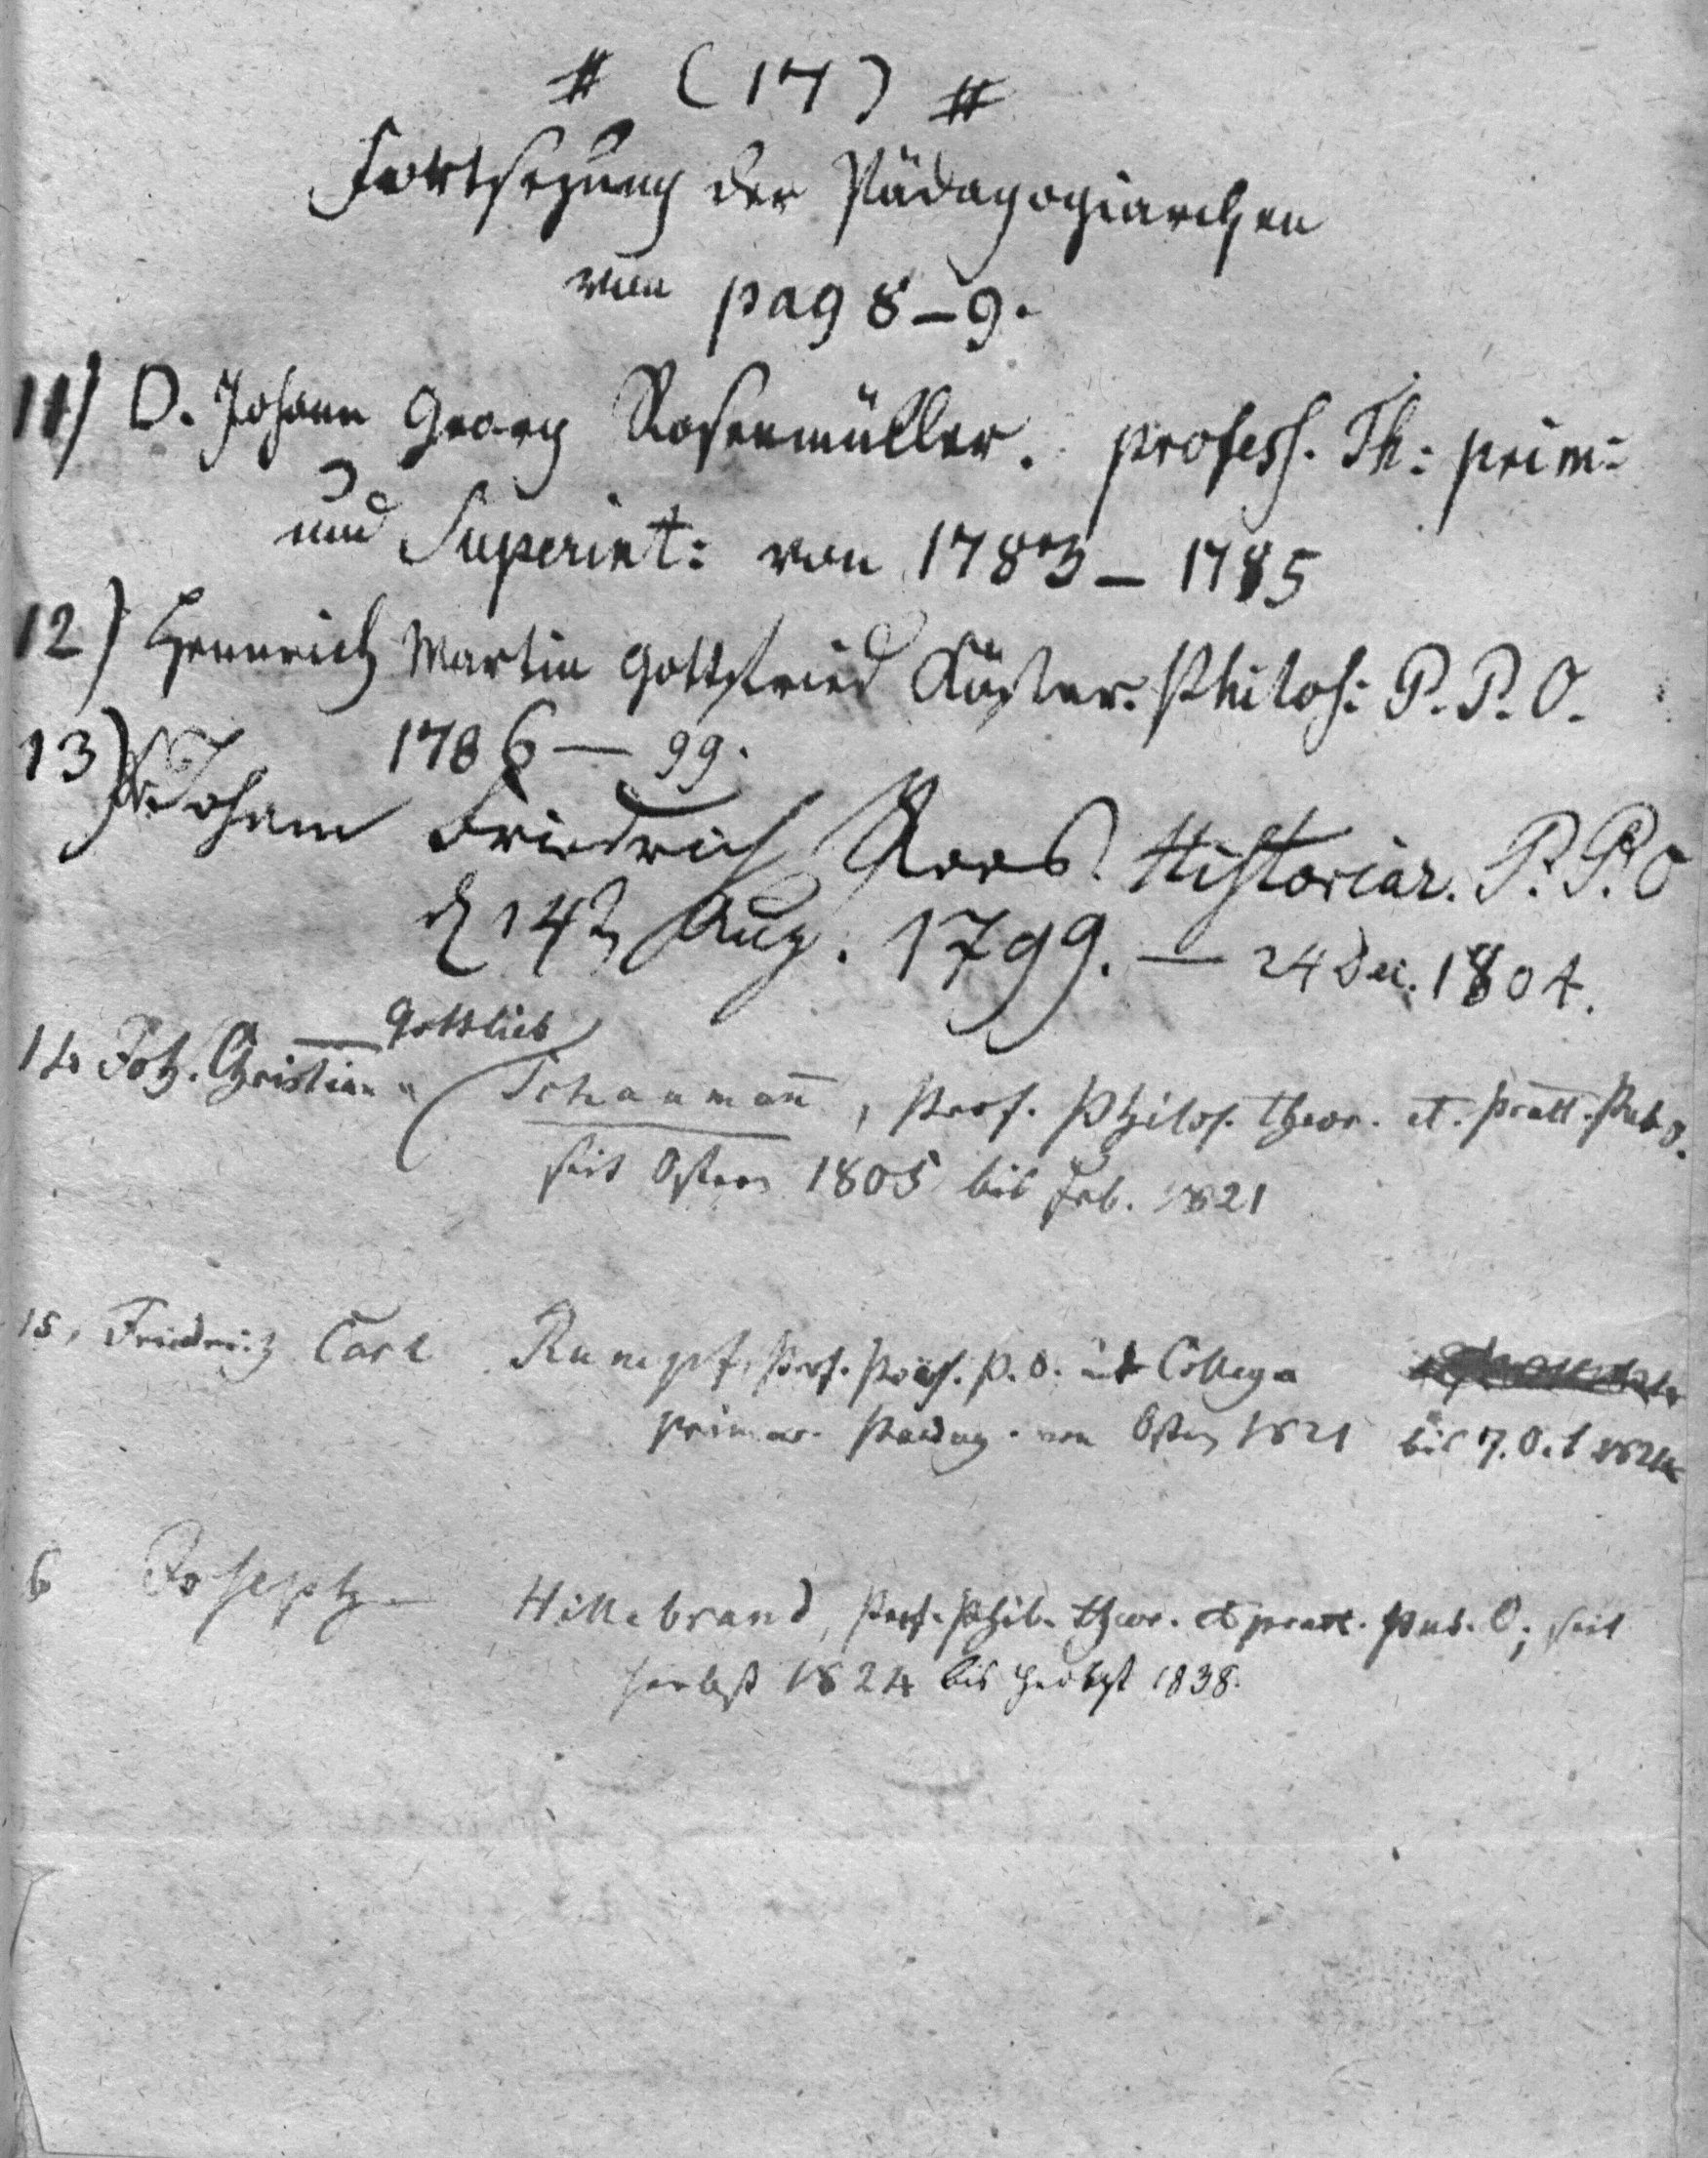 # (17) #
Fortsezung der Pädagogiarchen
von pag 8–9.
11) D. Johann Georg Rosenmüller. Profess. Th: prim:
und Superint: von 1783 – 1785
12) Hennrich Martin Gottfried Köster. Philos: P. P. O.
1786 – 99.
13) Johann Friedrich Roos. Historiar. P. P. O
d 14t Aug. 1799. — 24 Dec. 1804.
Gottlieb
14. Joh. Christian Schaumañ, Prof. Philos. theor. et. pract. Pub. O.
seit Ostern 1805 bis Feb. 1821
15, Friedrich Carl Rumpf, Prof. P. O. Collega
primar. Paedag. von Ostern 1821 bis 7. Oct 1824
6 Joseph Hillebrand, Prof. Phil. theor. et pract. Pub. O; seit
Herbst 1824 bis Herbst 1838.